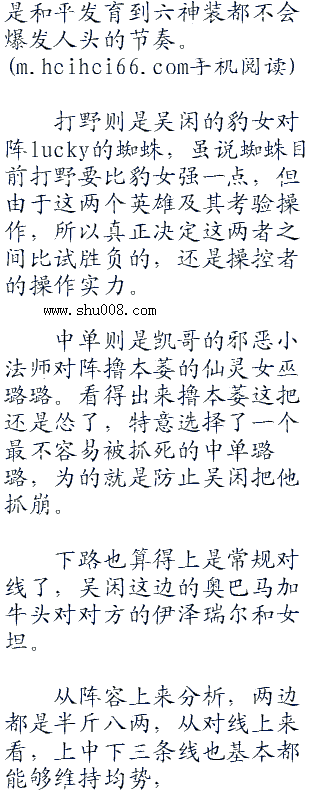 是和平发育到六神装都不会
爆发人头的节奏。
(m.hcihci66.com手机阅读)
打野则是吴闲的豹女对
阵lucky的蜘蛛，虽说蜘蛛目
前打野要比豹女强一点，但
由于这两个英雄及其考验操
作，所以真正决定这两者之
间比试胜负的，还是操控者
的操作实力。
www.shu008.com
中单则是凯哥的邪恶小
法师对阵撸本萎的仙灵女巫
璐璐。看得出来撸本萎这把
还是怂了，特意选择了一个
最不容易被抓死的中单璐
璐，为的就是防止吴闲把他
抓崩。
下路也算得上是常规对
线了，吴闲这边的奥巴马加
牛头对对方的伊泽瑞尔和女
坦。
从阵容上来分析，两边
都是半斤八两，从对线上来
看，上中下三条线也基本都
能够维持均势，